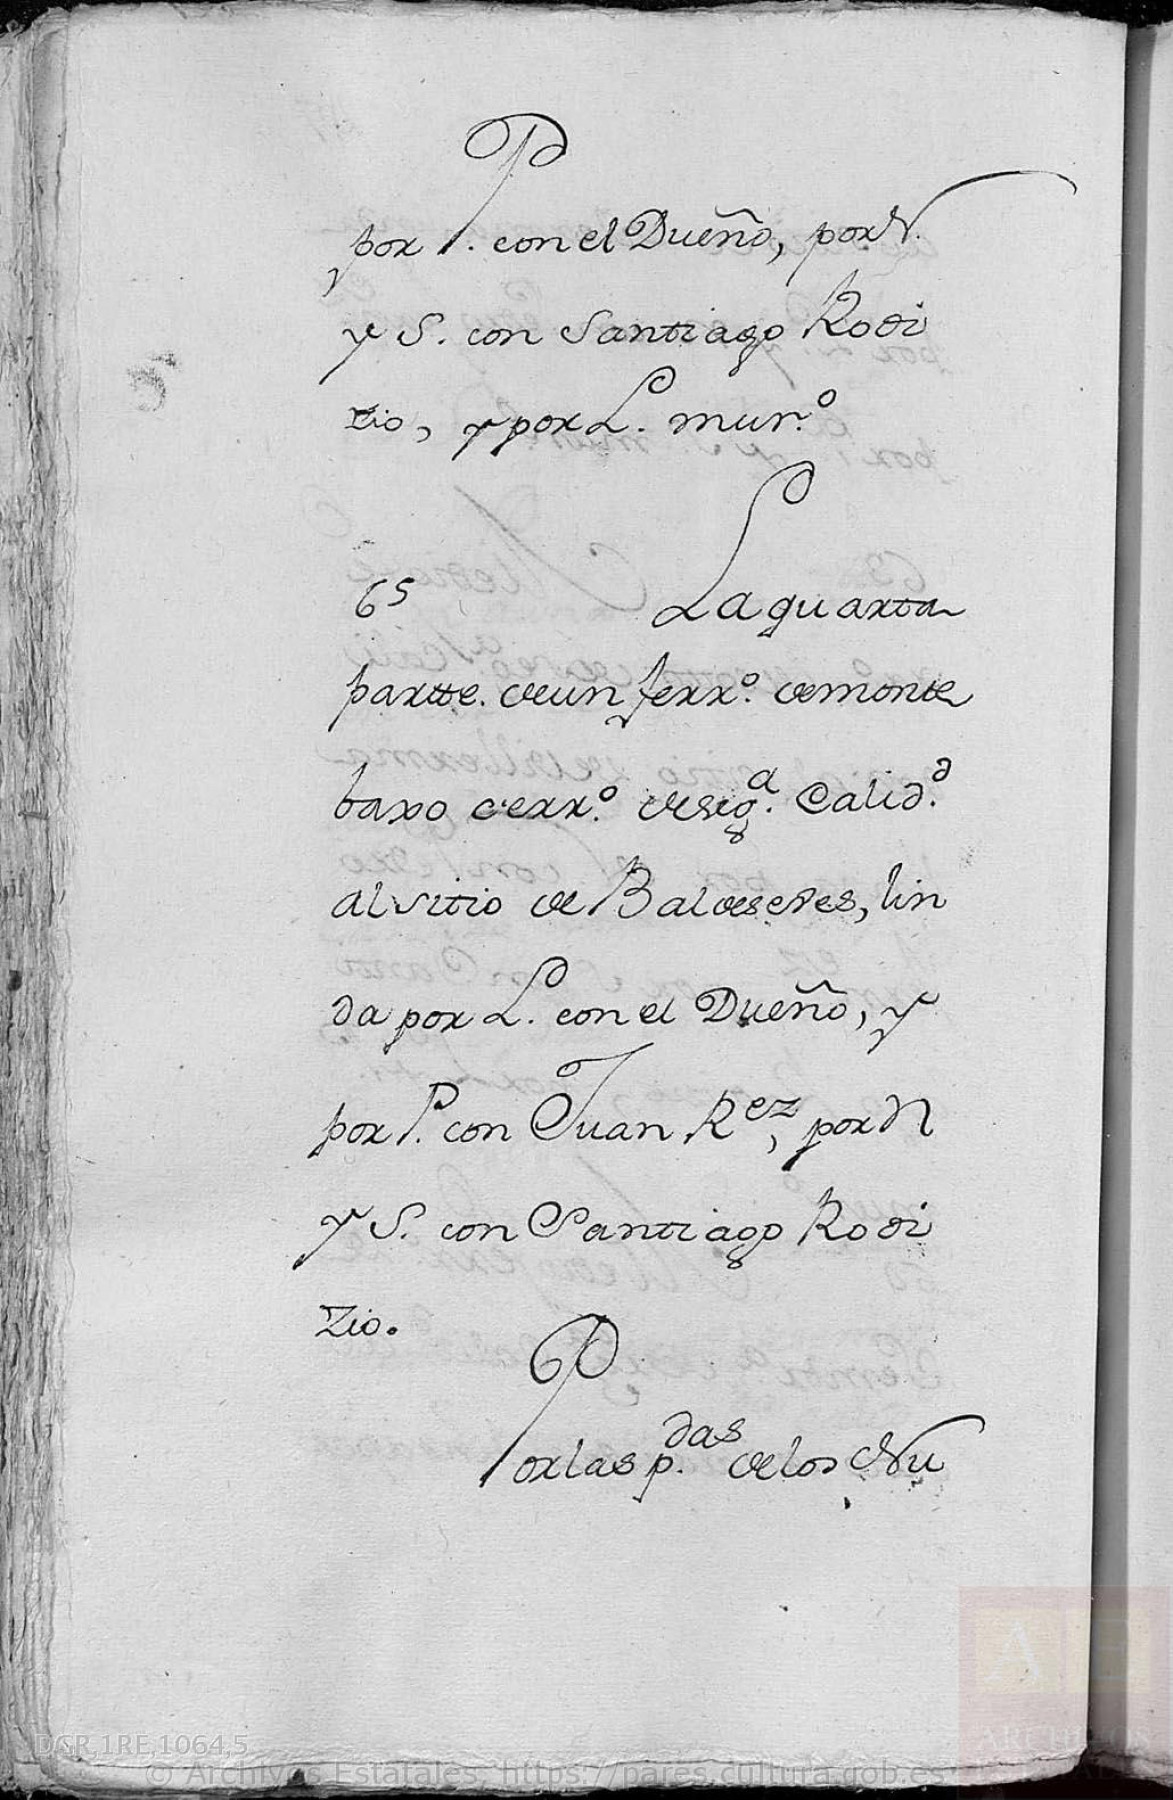 por P. con el Dueño, por N.
y S. con Santiago Rodi
zio, y por L. mur.º
65 La quarta
partte. de un ferr.º de monte
baxo cerr.º de seg.ª Calid.d
al sitio de Baldeseres, lin
da por L. con el Dueño, y
por P. con Juan R.ez, por N
y S. con Santiago Rodi
zio.
Por las p.das de los Nu
DGR,1RE,1064,5
© Archivos Estatales, https://pares.cultura.gob.es
AE
ARCHIVOS